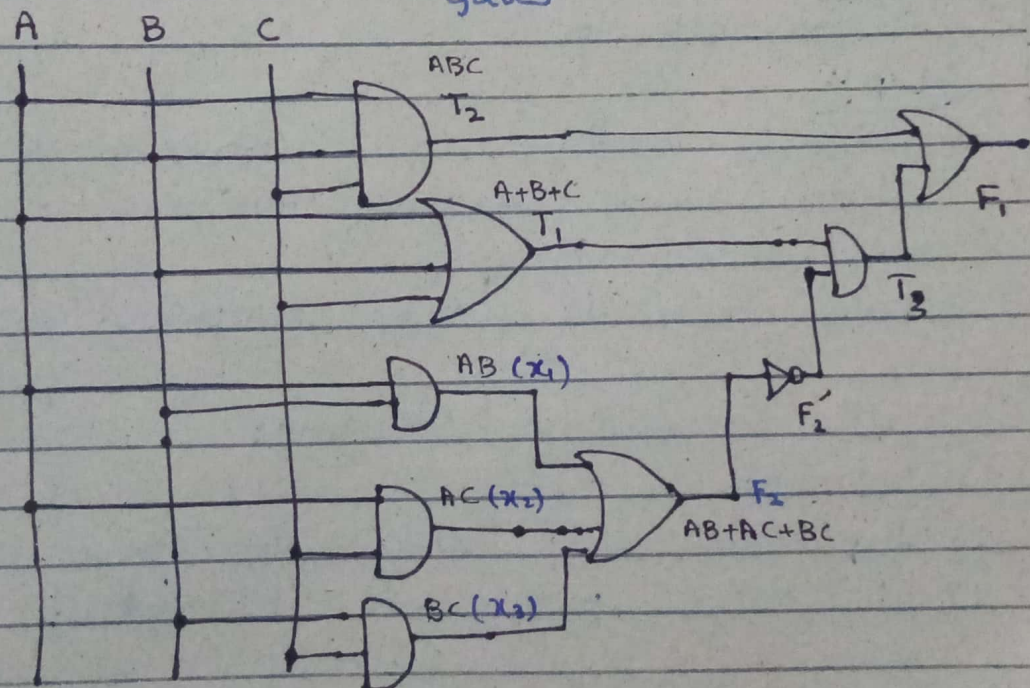 A B C
ABC
T2
A+B+C
T1
F1
T3
AB (x1)
F2'
AC (x2)
F2
AB+AC+BC
BC (x3)